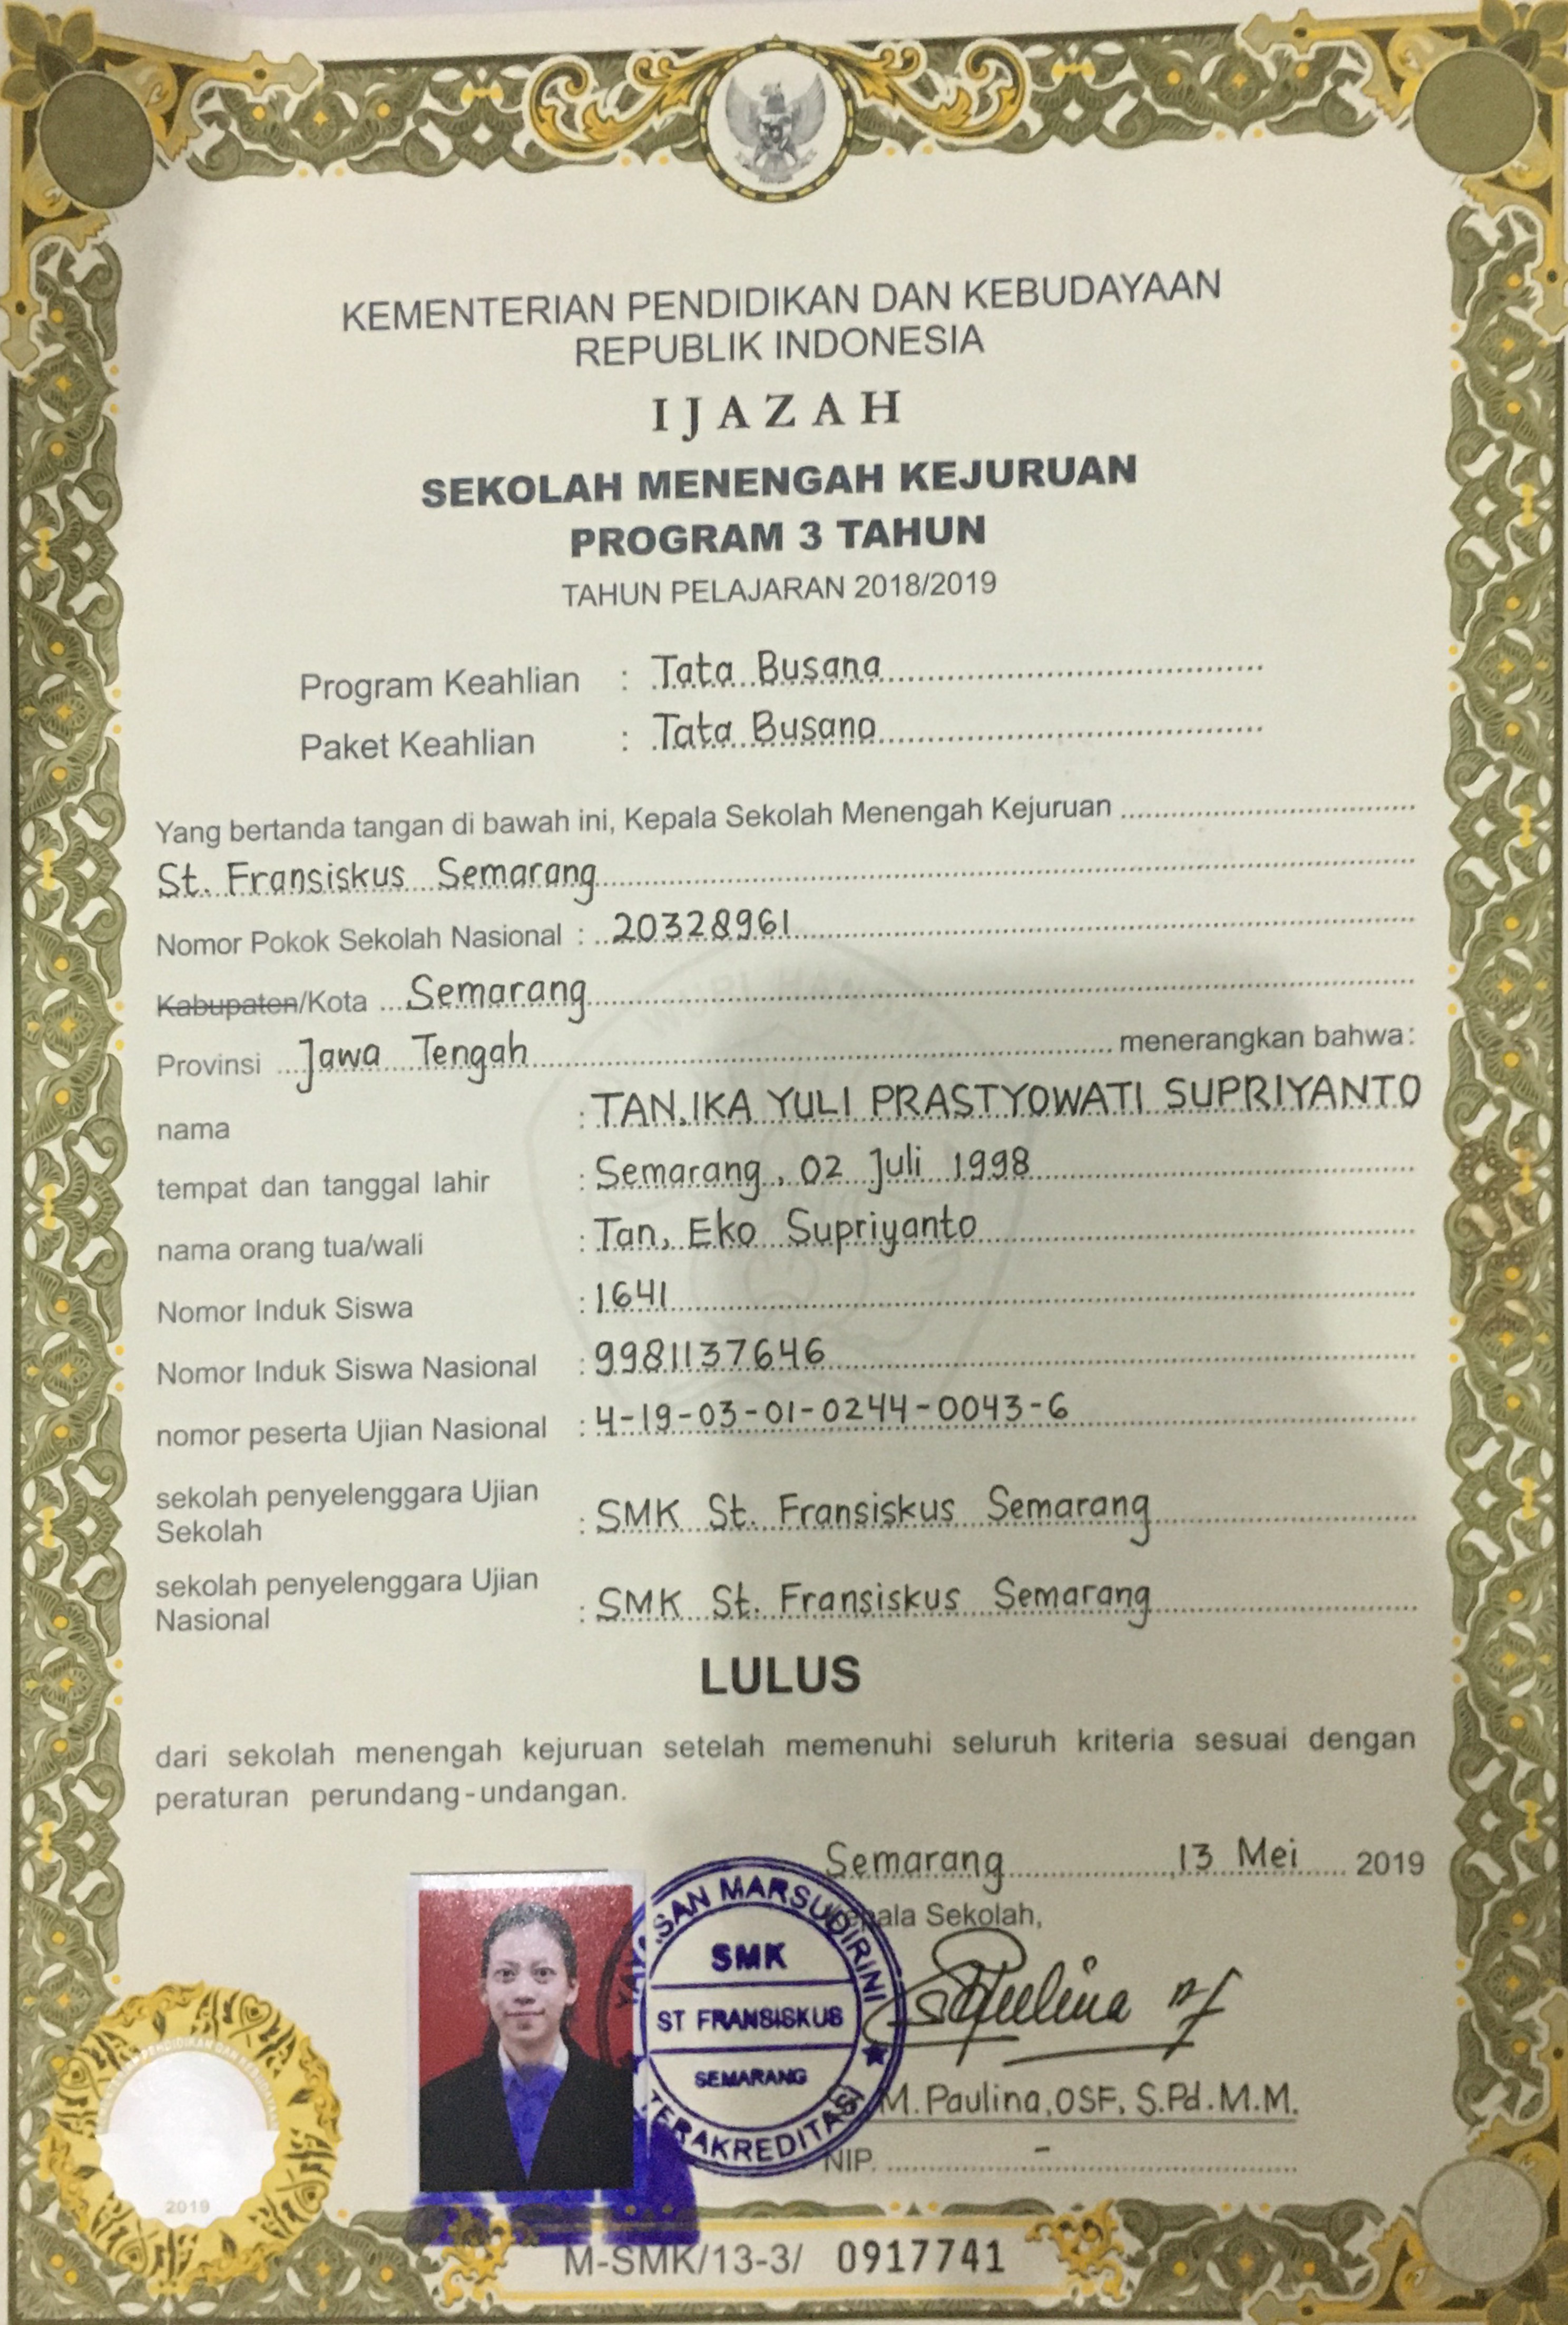 KEMENTERIAN PENDIDIKAN DAN KEBUDAYAAN
REPUBLIK INDONESIA
IJAZAH
SEKOLAH MENENGAH KEJURUAN
PROGRAM 3 TAHUN
TAHUN PELAJARAN 2018/2019
Program Keahlian : Tata Busana
Paket Keahlian : Tata Busana
Yang bertanda tangan di bawah ini, Kepala Sekolah Menengah Kejuruan
St. Fransiskus Semarang
Nomor Pokok Sekolah Nasional : 20328961
Kabupaten/Kota Semarang
Provinsi Jawa Tengah menerangkan bahwa:
nama : TAN,IKA YULI PRASTYOWATI SUPRIYANTO
tempat dan tanggal lahir : Semarang, 02 Juli 1998
nama orang tua/wali : Tan, Eko Supriyanto
Nomor Induk Siswa : 1641
Nomor Induk Siswa Nasional : 9981137646
nomor peserta Ujian Nasional : 4-19-03-01-0244-0043-6
sekolah penyelenggara Ujian
Sekolah : SMK St. Fransiskus Semarang
sekolah penyelenggara Ujian
Nasional : SMK St. Fransiskus Semarang
LULUS
dari sekolah menengah kejuruan setelah memenuhi seluruh kriteria sesuai dengan
peraturan perundang-undangan.
Semarang, 13 Mei 2019
Kepala Sekolah,
YAYASAN MARSUDIRINI
SMK
ST FRANSISKUS
SEMARANG
TERAKREDITASI
M. Paulina, OSF, S.Pd. M.M.
NIP. -
2019
M-SMK/13-3/ 0917741